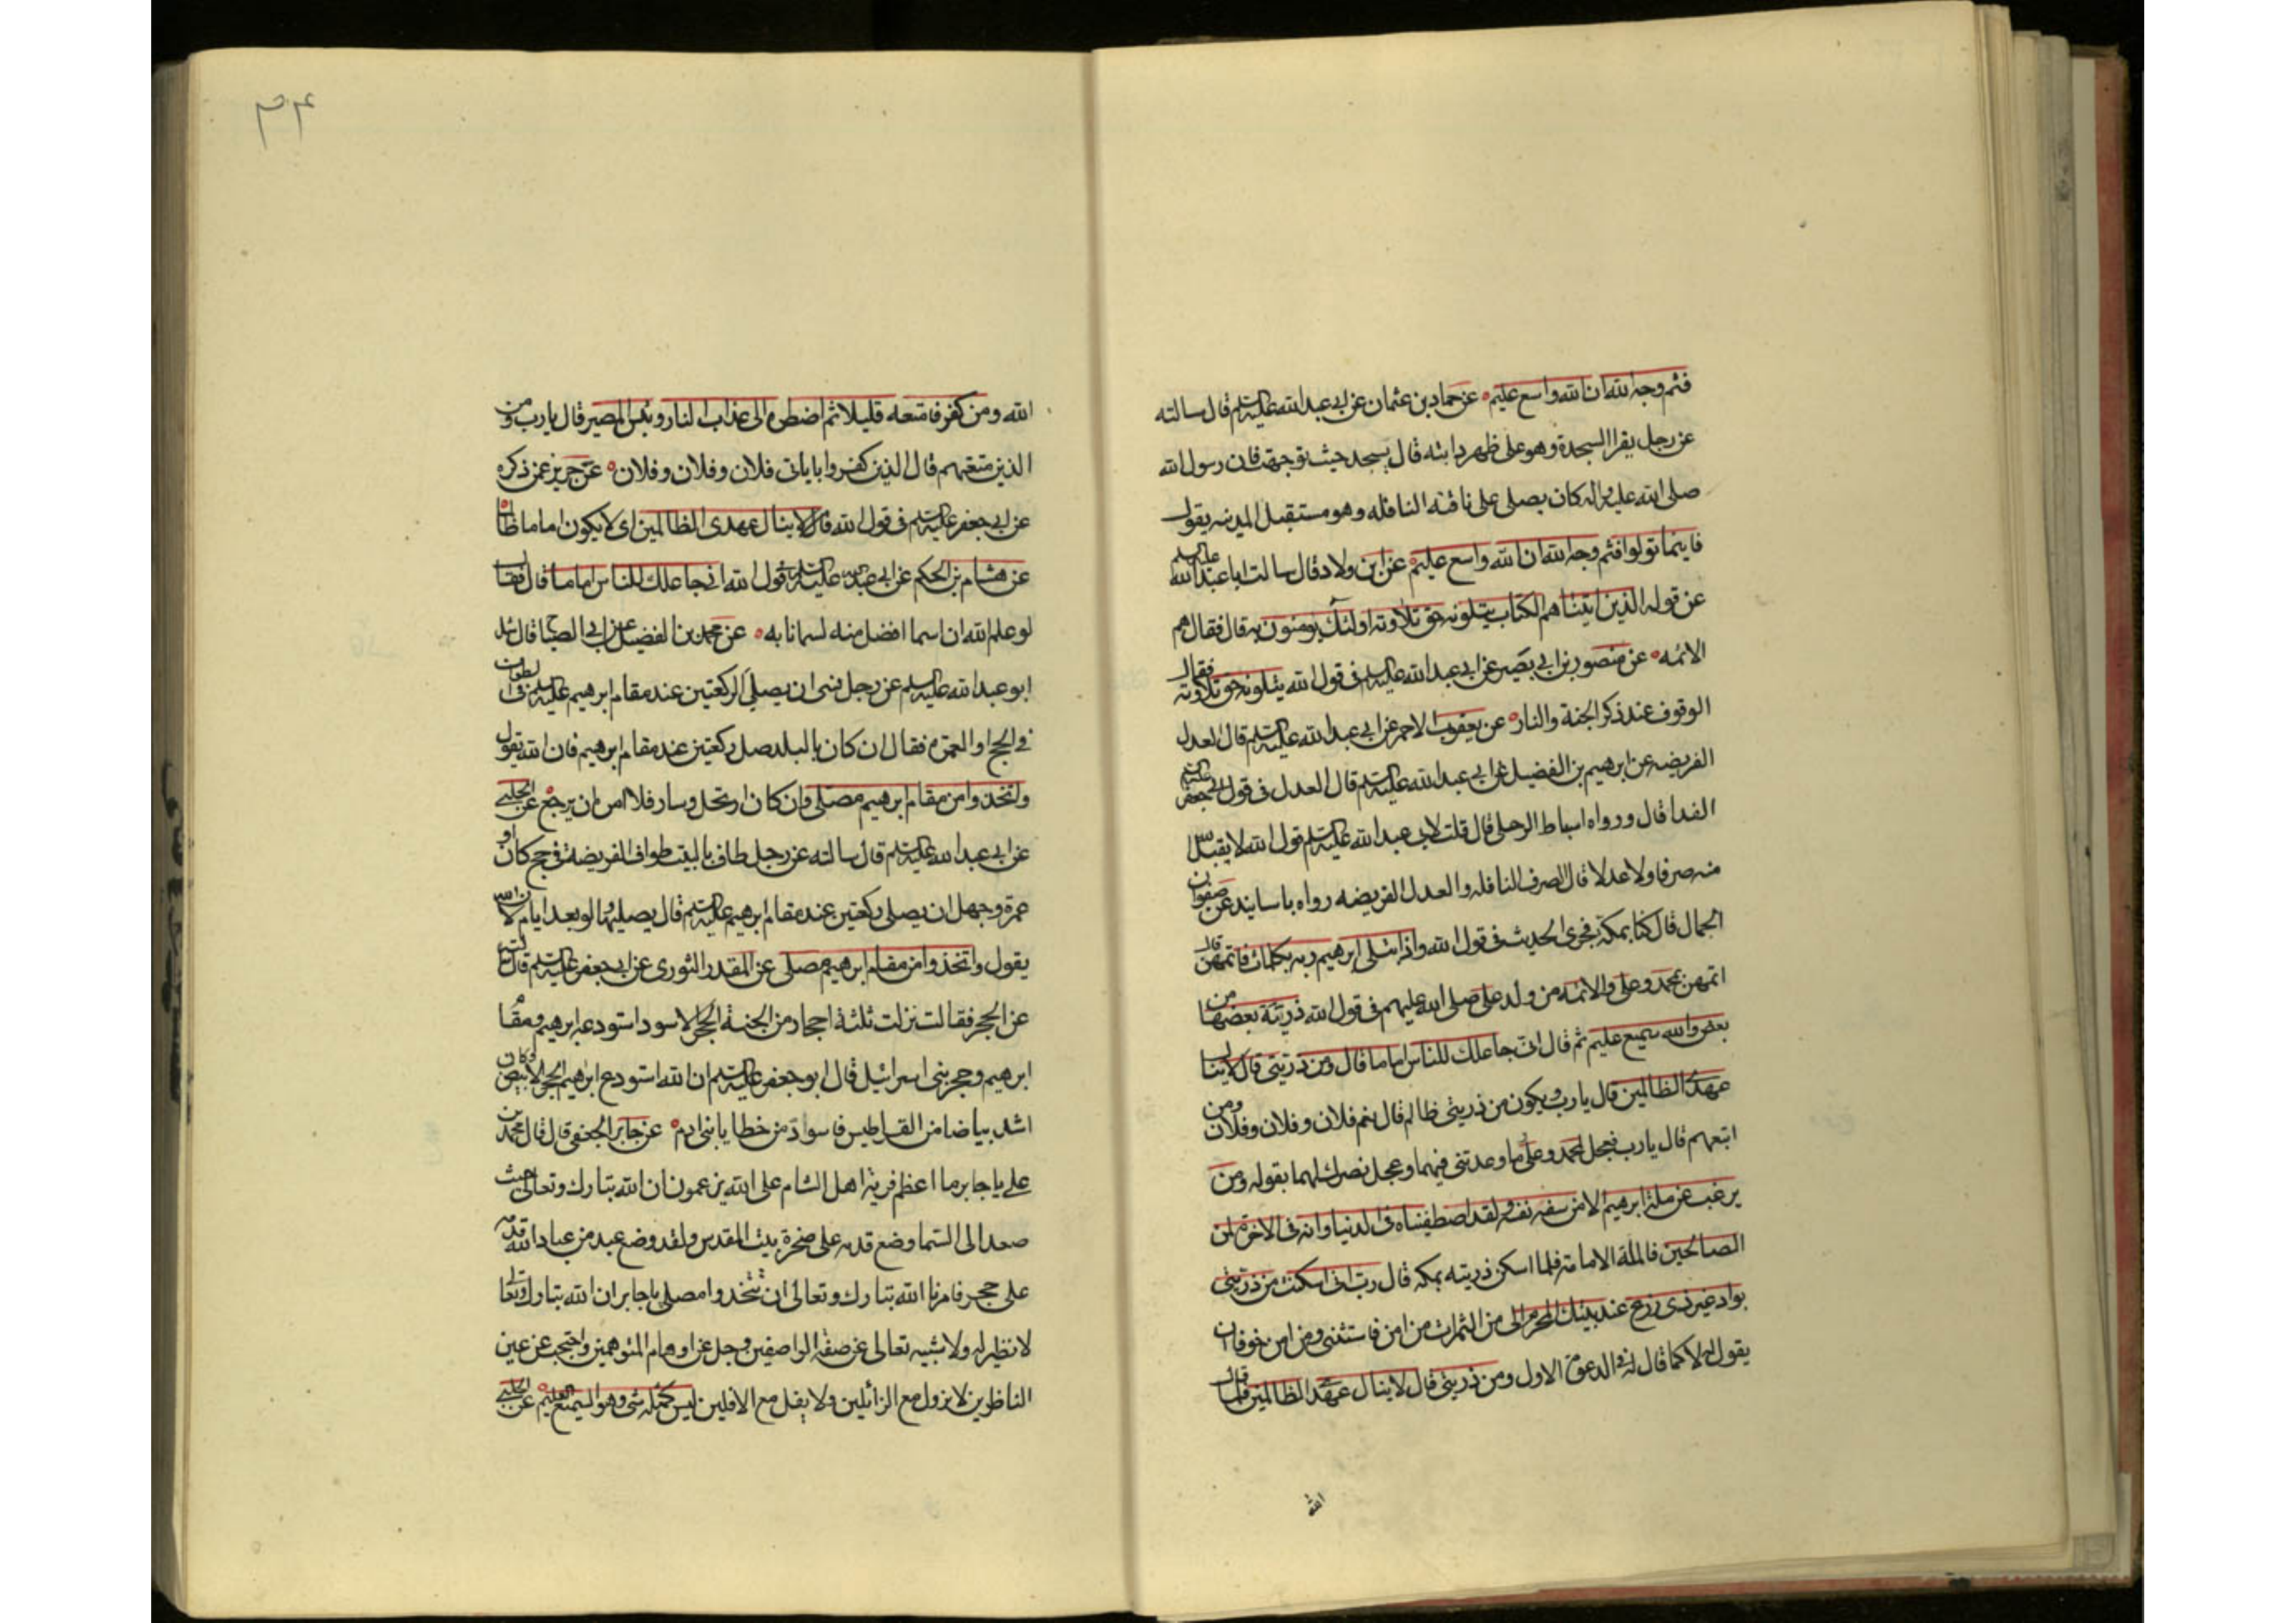 فثم وجه الله ان الله واسع عليم ه عن حماد بن عثمان عن ابي عبد الله عليه السلم قال سالته
عن رجل يقرا السجدة وهو على ظهر دابته قال يسجد حيث توجهت فان رسول الله
صلى الله عليه واله كان يصلى على ناقته النافله وهو مستقبل المدينه يقول
فاينما تولوا فثم وجه الله ان الله واسع عليم ه عن ابن ولاد قال سالت ابا عبد الله عليه السلم
عن قوله الذين اتيناهم الكتاب يتلونه حق تلاوته اولئك يومنون به قال فقال هم
الائمه ه عن منصور بن ابي بصير عن ابي عبد الله عليه السلم فى قول الله يتلونه حق تلاوته فقال
الوقوف عند ذكر الجنة والنار ه عن يعقوب الاحمر عن ابي عبد الله عليه السلم قال العدل
الفريضه عن ابرهيم بن الفضيل عن ابي عبد الله عليه السلم قال العدل فى قول ابي جعفر عليه السلم
الفدا قال ورواه اسباط الزحلى قال قلت لابي عبد الله عليه السلم قول الله لا يقبل الله
منه صرفا ولا عدلا قال الصرف النافله والعدل الفريضه رواه باسانيد عن صفوان
الجمال قال كنا بمكة فجرى الحديث فى قول الله واذ ابتلى ابرهيم ربه بكلمات فاتمهن قال
اتمهن بمحمد وعلى والائمه من ولد على صلى الله عليهم فى قول الله ذرية بعضها من
بعض والله سميع عليم ثم قال انى جاعلك للناس اماما قال ومن ذريتى قال لا ينال
عهدى الظالمين قال يارب ويكون من ذريتى ظالم قال نعم فلان وفلان وفلان ومن
اتبعهم قال يارب فعجل لمحمد وعلى ما وعدتنى فيهما وعجل نصرك لهما بقوله ومن
يرغب عن ملة ابرهيم الا من سفه نفسه ولقد اصطفيناه فى الدنيا وانه فى الاخرة لمن
الصالحين فالملة الامامة فلما اسكن ذريته بمكه قال رب انى اسكنت من ذريتى
بواد غير ذى زرع عند بيتك المحرم الى من الثمرات من امن فاستثنى من امن خوفا ان
يقول له لا كما قال له فى الدعوة الاول ومن ذريتى قال لا ينال عهدى الظالمين فلما قال
الله
٣٤
الله ومن كفر فامتعه قليلا ثم اضطره الى عذاب النار وبئس المصير قال يارب ومن
الذين متعتهم قال الذين كفروا باياتى فلان وفلان وفلان ه عن حريز عمن ذكره
عن ابي جعفر عليه السلم فى قول الله قال لا ينال عهدى الظالمين اى لا يكون اماما ظالما
عن هشام بن الحكم عن ابي عبد الله عليه السلم فى قول الله انى جاعلك للناس اماما قال فقال
لو علم الله ان اسما افضل منه لسمانا به ه عن محمد بن الفضيل عن ابي الصباح قال سئل
ابو عبد الله عليه السلم عن رجل نسى ان يصلى الركعتين عند مقام ابرهيم عليه السلم فى الطواف
فى الحج او العمرة فقال ان كان بالبلد صلى ركعتين عند مقام ابرهيم فان الله يقول
واتخذوا من مقام ابرهيم مصلى وان كان ارتحل وسار فلا امره ان يرجع ه عن الحلبي
عن ابي عبد الله عليه السلم قال سالته عن رجل طاف بالبيت طواف الفريضة فى حج كان او
عمرة وجهل ان يصلى ركعتين عند مقام ابرهيم عليه السلم قال يصليها ولو بعد ايام لان الله
يقول واتخذوا من مقام ابرهيم مصلى عن المقدر الثورى عن ابي جعفر عليه السلم قال سالته
عن الحجر فقال نزلت ثلثة احجار من الجنة الحجر الاسود استودعه ابرهيم ومقام
ابرهيم وحجر بنى اسرائيل قال ابو جعفر عليه السلم ان الله استودع ابرهيم الحجر الابيض وكان
اشد بياضا من القراطيس فاسود من خطايا بنى ادم ه عن جابر الجعفى قال قال محمد بن
على يا جابر ما اعظم فرية اهل الشام على الله يزعمون ان الله تبارك وتعالى حيث
صعد الى السما وضع قدمه على صخرة بيت المقدس ولقد وضع عبد من عباد الله قدمه
على حجر فامرنا الله تبارك وتعالى ان نتخذوا مصلى يا جابر ان الله تبارك وتعالى
لا نظير له ولا شبيه تعالى عن صفة الواصفين وجل عن اوهام المتوهمين واحتجب عن عين
الناظرين لا يزول مع الزائلين ولا يفل مع الافلين ليس كمثله شى وهو السميع العليم ه عن الحلبي